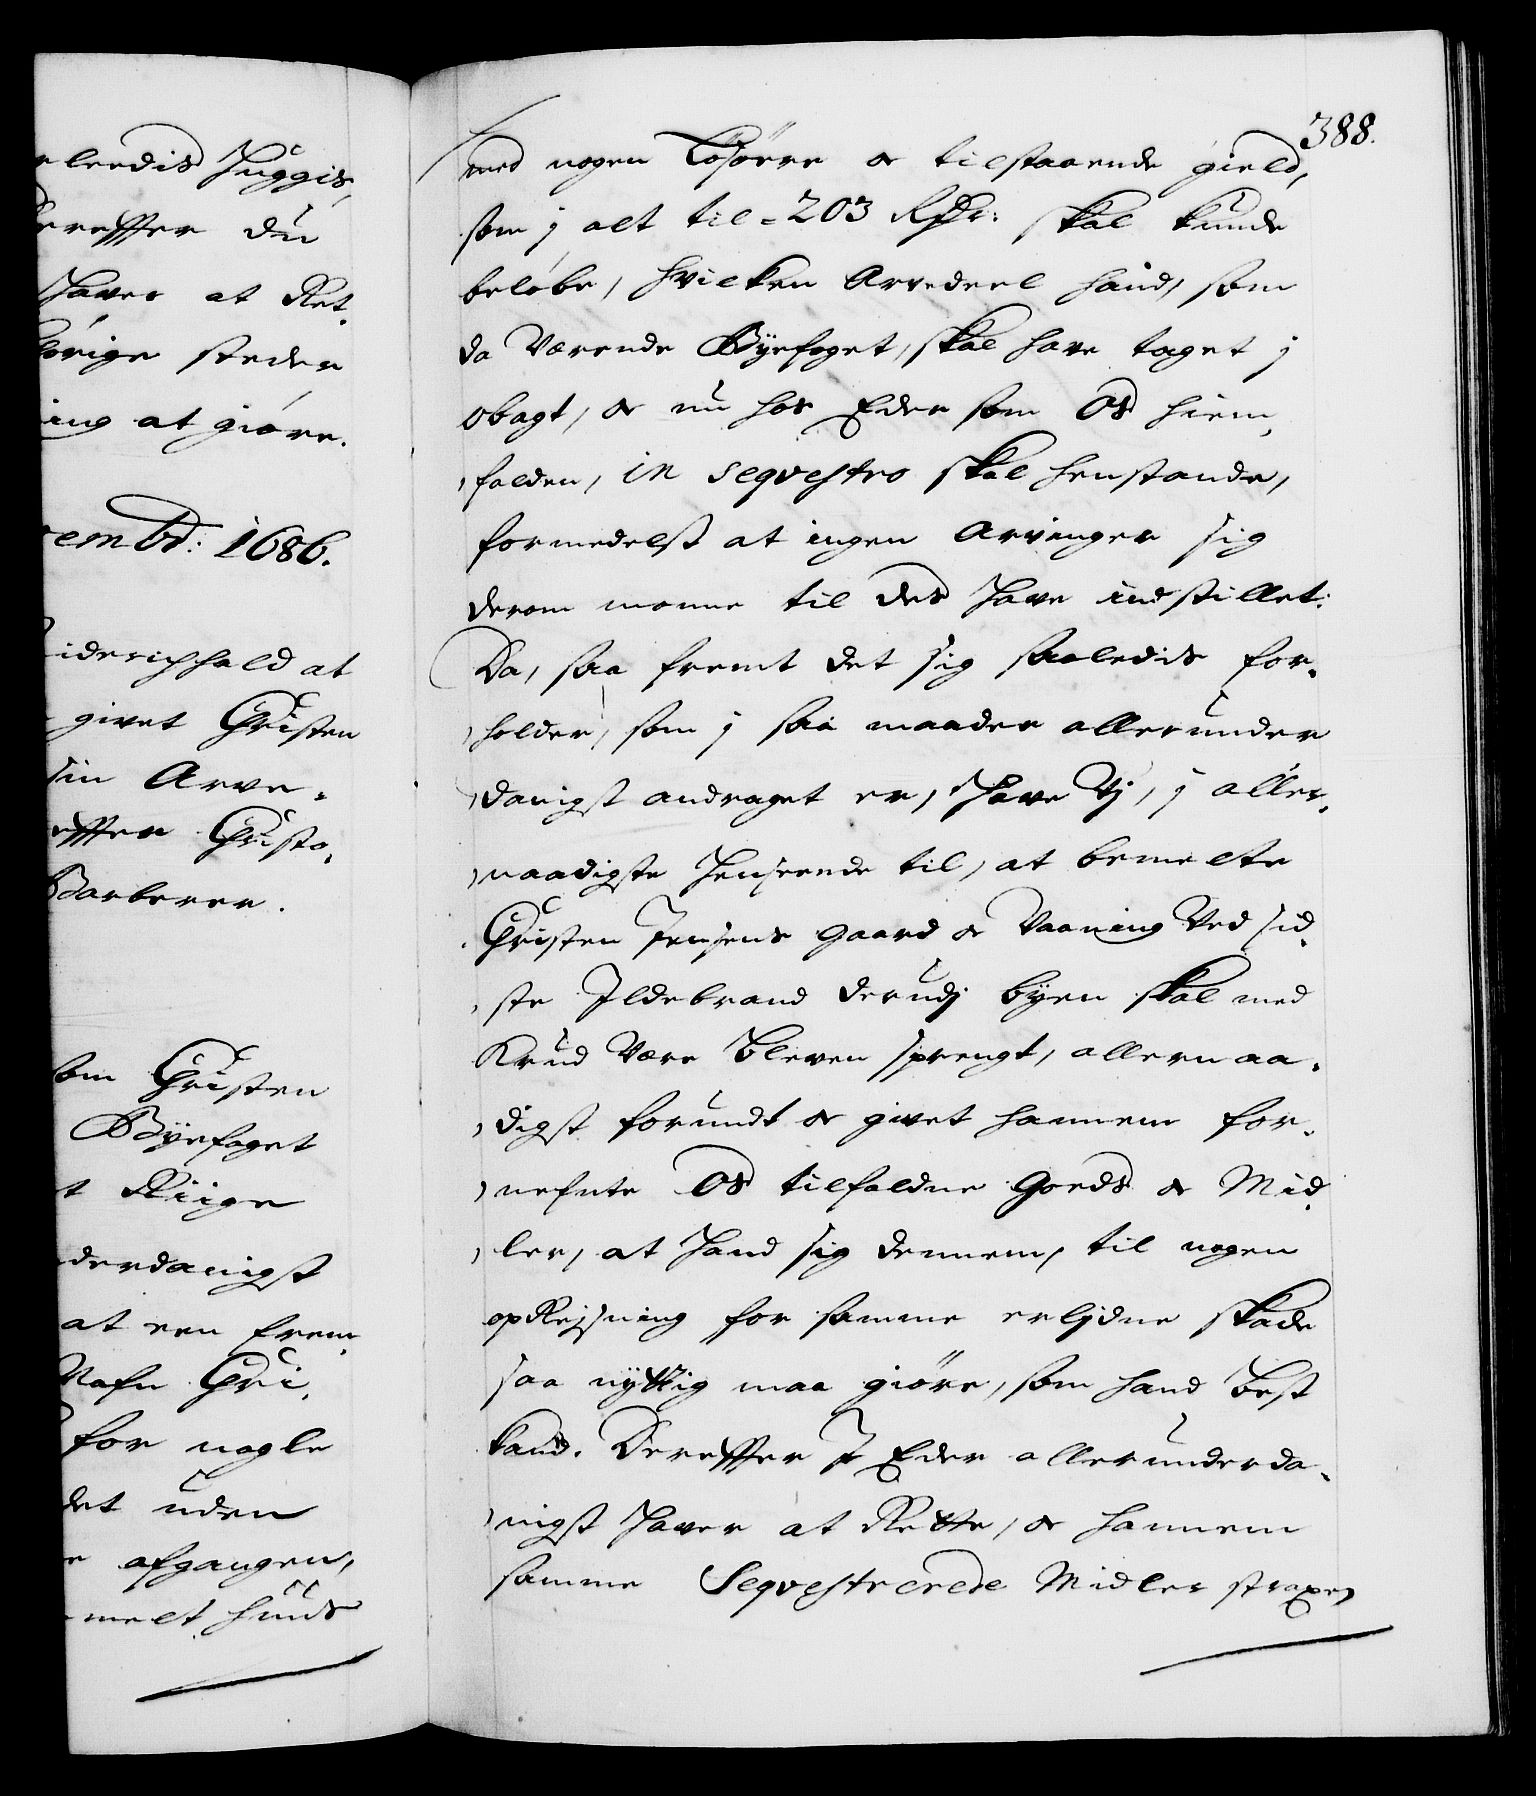 leedis Huggis,
dereffter du
haver at Ret,
hörige steder
ing at giöre.
cembr: 1686.
iderichshald at
givet Christen
sin Arve-
effter Christo,
Barberer.
om Christen
Byefoget
t Riige
derdanigst
at een frem,
Nafn Chri,
for nogle
det uden
afgangen,
melt huus
388.
med nogen Lösöere & tilstaaende gield,
som j alt til = 203 Rdr: skal kunde
beløbe, hvilken Arvedeel hand, som
da Værende Byefoget, skal have taget j
obagt, & nu hos Eder som Os hiem,
falden, in seqvestro skal henstande,
formedelst at ingen Arvinger sig
derom monne til des have indstillet:
Da, saa fremt det sig saaledis for-
holder, som j saa maader allerunder
danigst andraget er, have Vj, j aller-
naadigste Henseende til, at bemelte
Christen Jensens gaard & Vaaning Ved sid,
ste Ildebrand derudj byen skal med
Krud Være bleven sprengt, allernaa-
digst forundt & givet hannem for-
nefnte Os tilfaldne Goeds & Mid,
ler, at hand sig dennem, til nogen
opReisning for samme erlidne skade
saa nyttig maa giöre, som hand best
kand. Dereffter I Eder allerunderda-
nigst haver at Rette, & hannem
samme Seqvestrerede Midler straxen